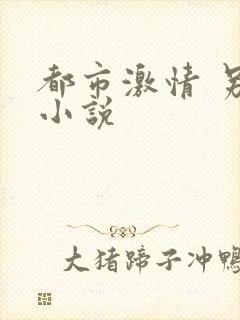 都市激情
小说
大猪蹄子冲鸭